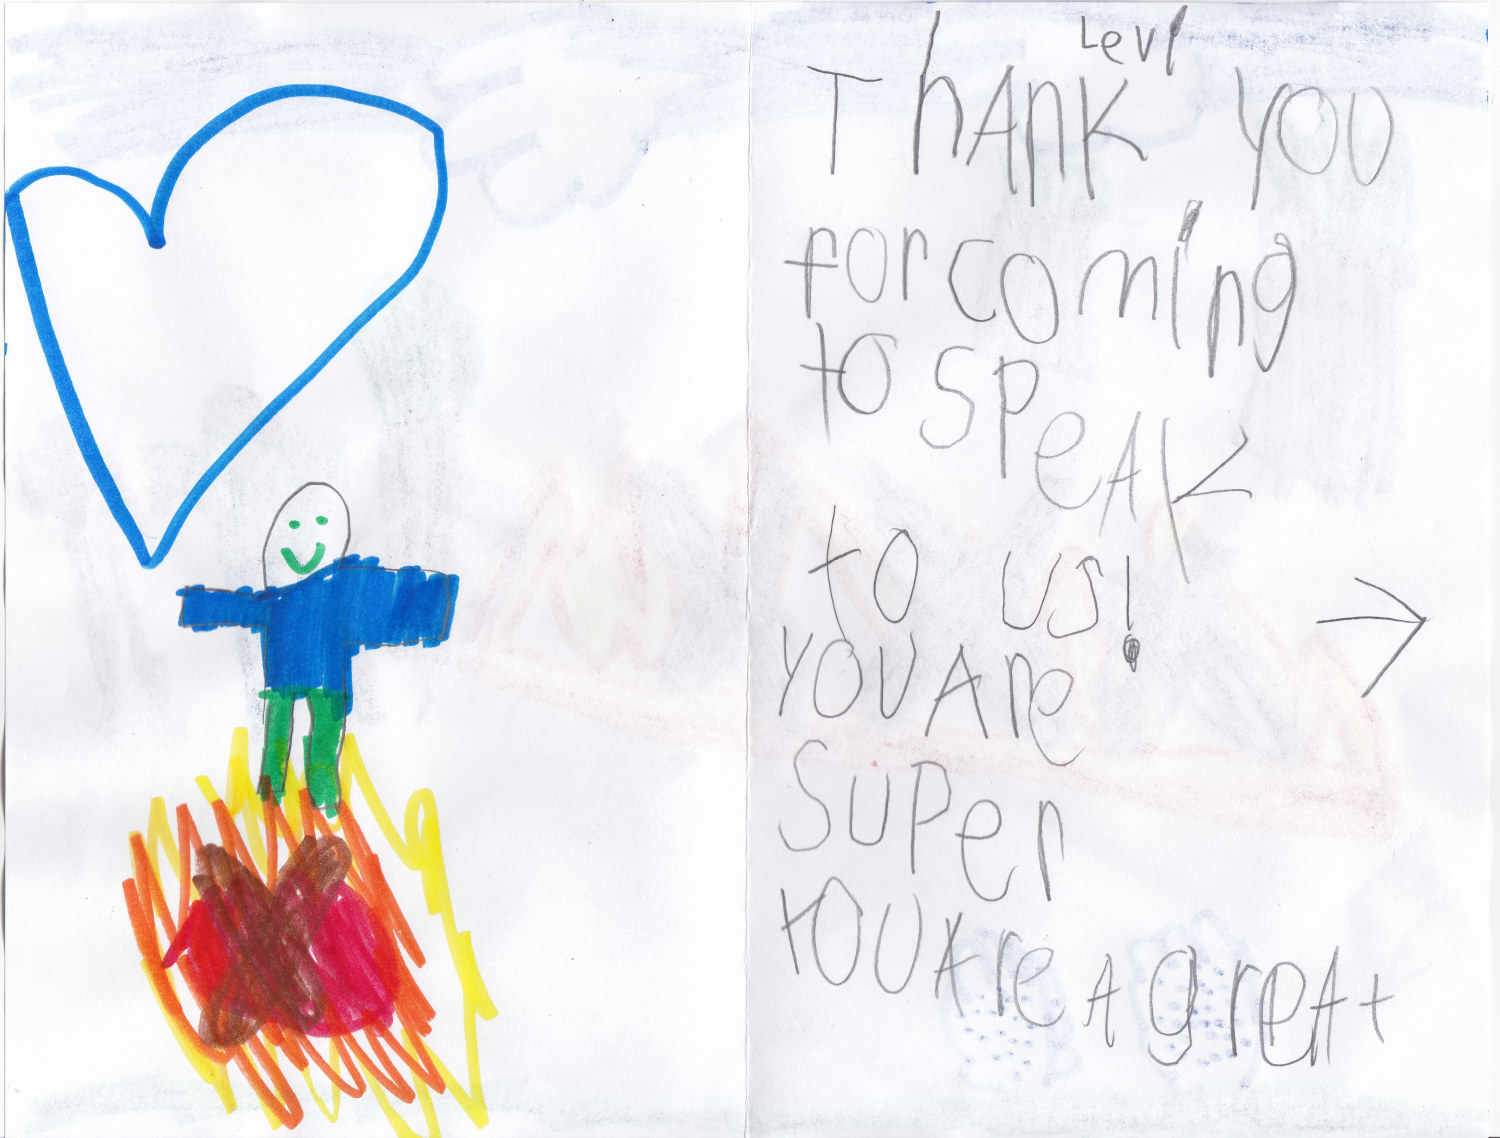 Levi
ThAnk YOU
for coming
to speAk
to us!
YOU Are
super
YOU Are A greAt